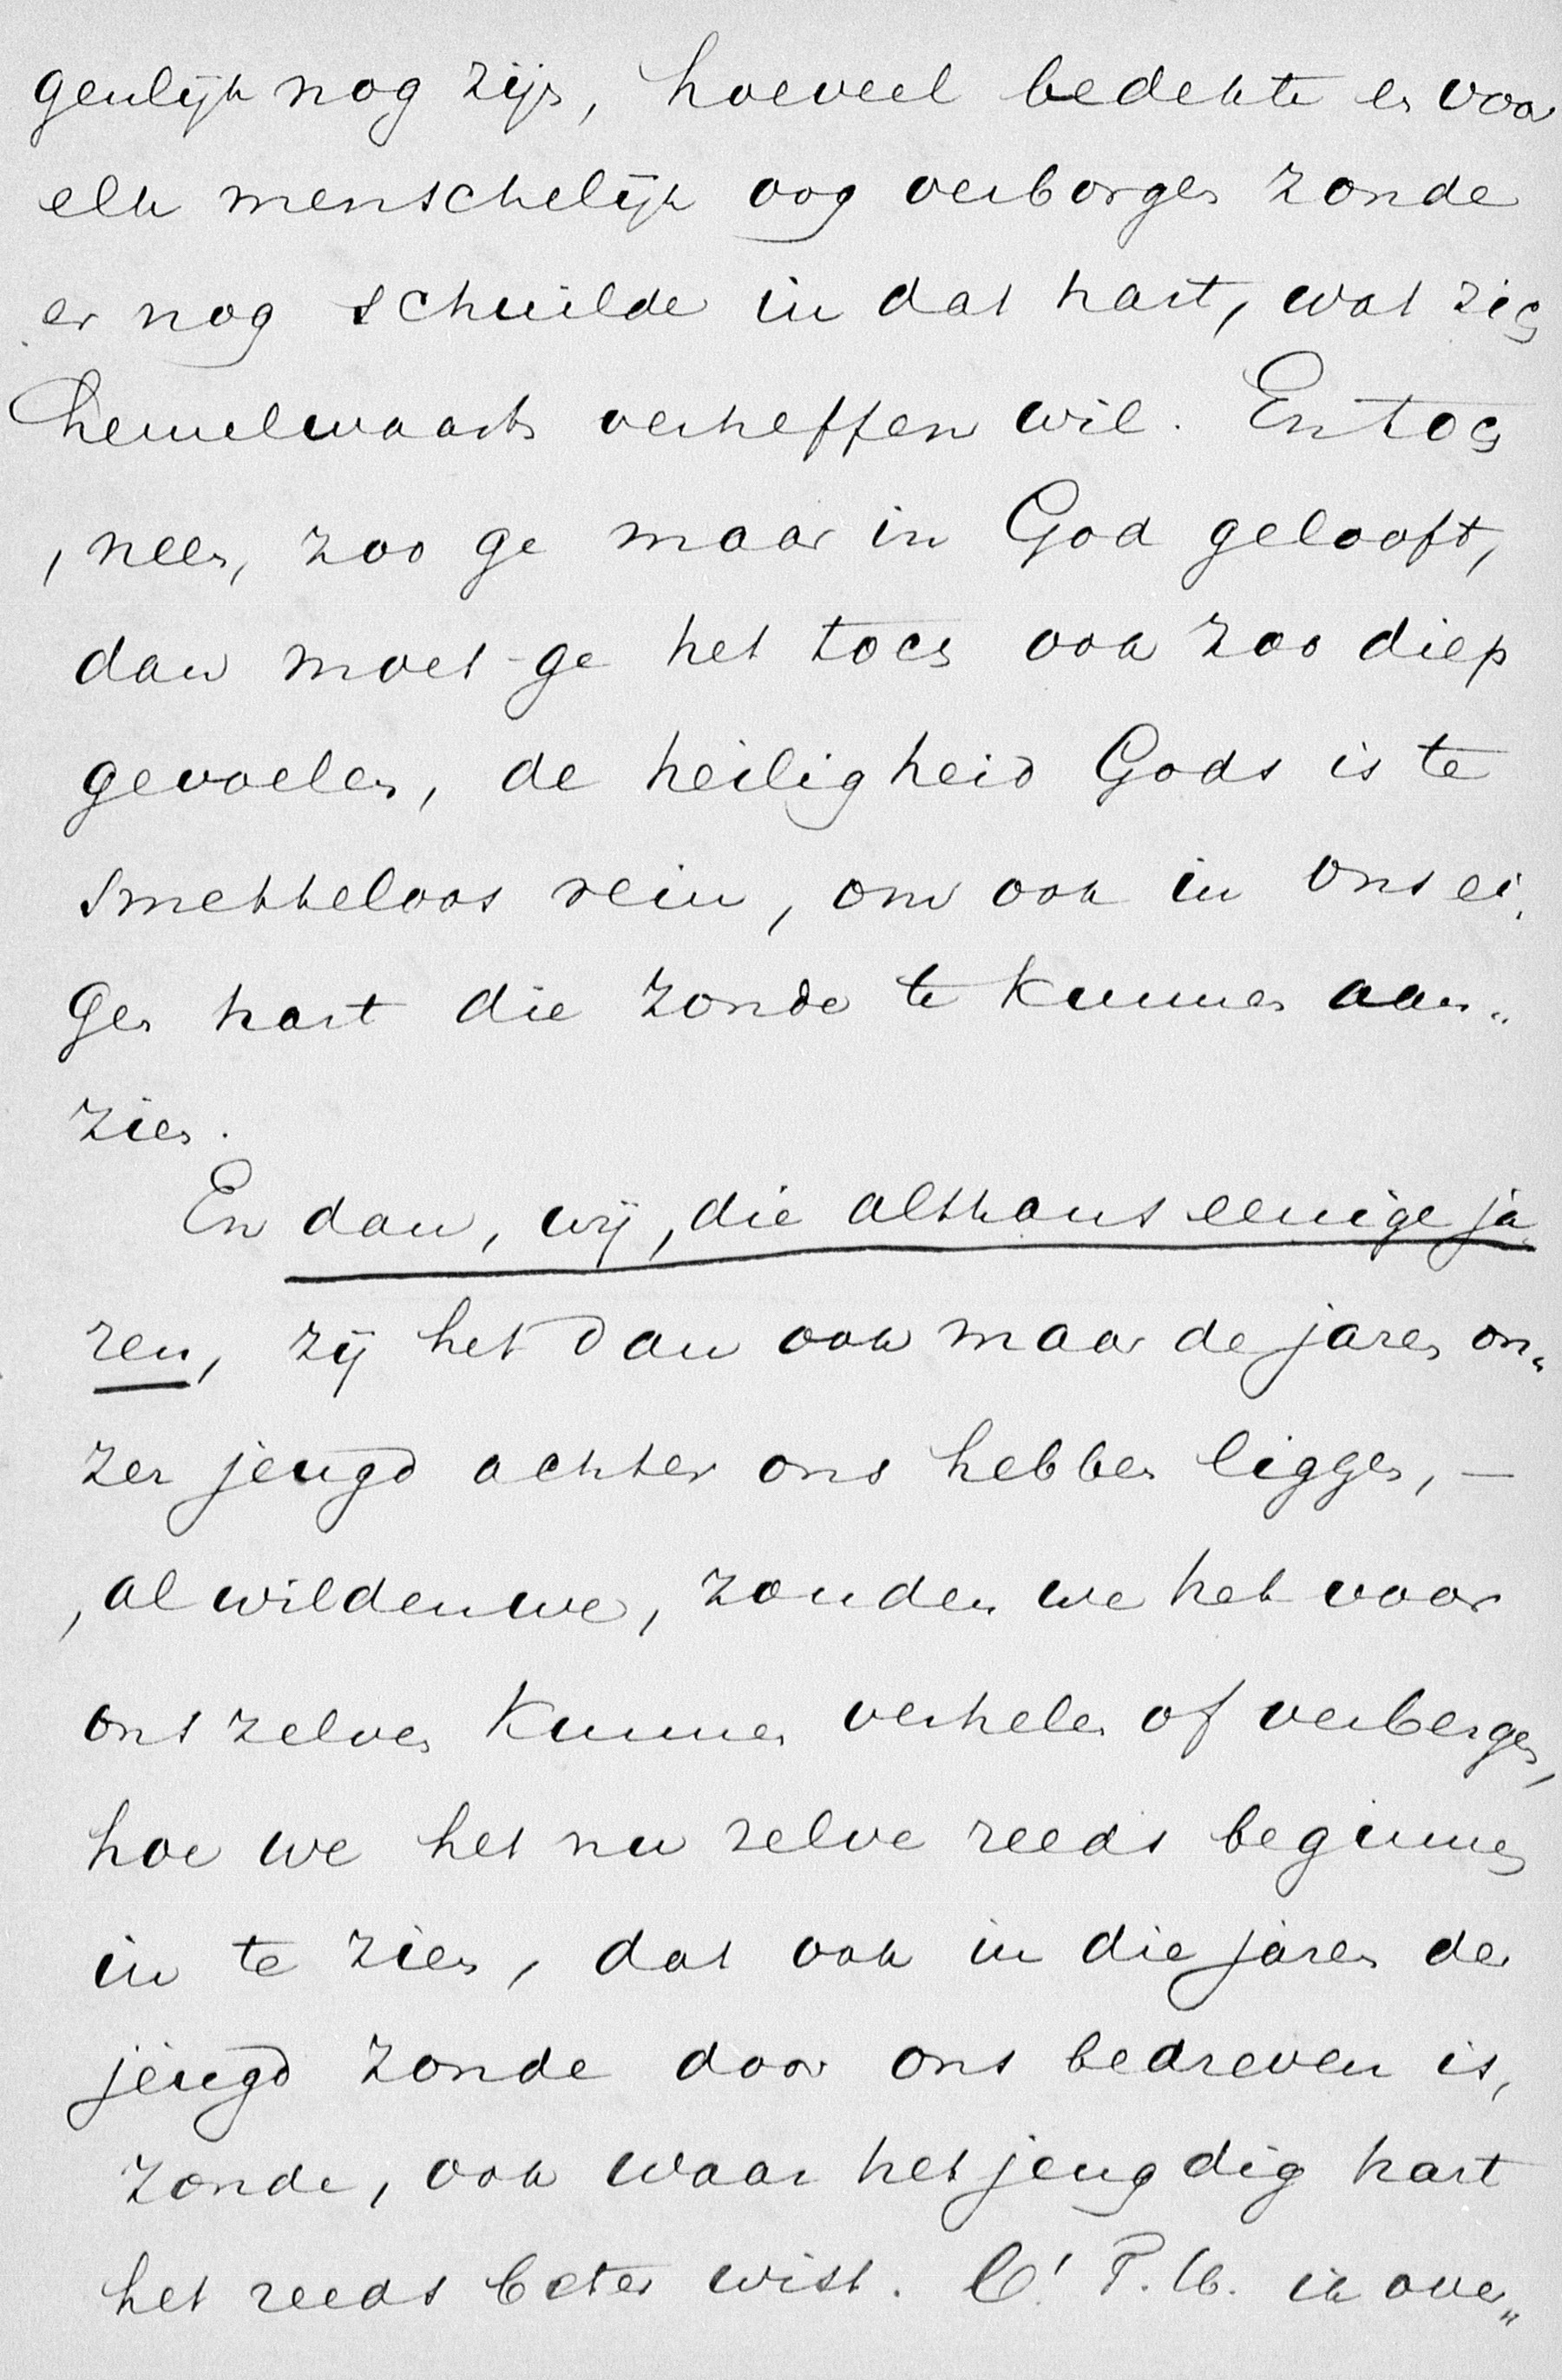 genlijk nog zijn, hoeveel bedekte en voor
elk menschelijk oog verborgen zonde
er nog schuilde in dat hart, wat zich
hemelwaarts verheffen wil. En toch
, neen, zoo ge maar in God gelooft,
dan moet ge het toch ook zoo diep
gevoelen, de heiligheid Gods is te
smekkeloos rein, om ook in ons ei„
gen hart die zonde te kunnen aan„
zien.
En dan, wij, die althans eenige ja„
ren, zij het dan ook maar de jaren on„
zer jeugd achter ons hebben liggen, —
, al wilden we, zouden we het voor
ons zelven kunnen verhelen of verbergen,
hoe we het nu zelve reeds beginnen
in te zien, dat ook in die jaren der
jeugd zonde door ons bedreven is,
zonde, ook waar het jeugdig hart
het reeds beter wist. O! ik over„